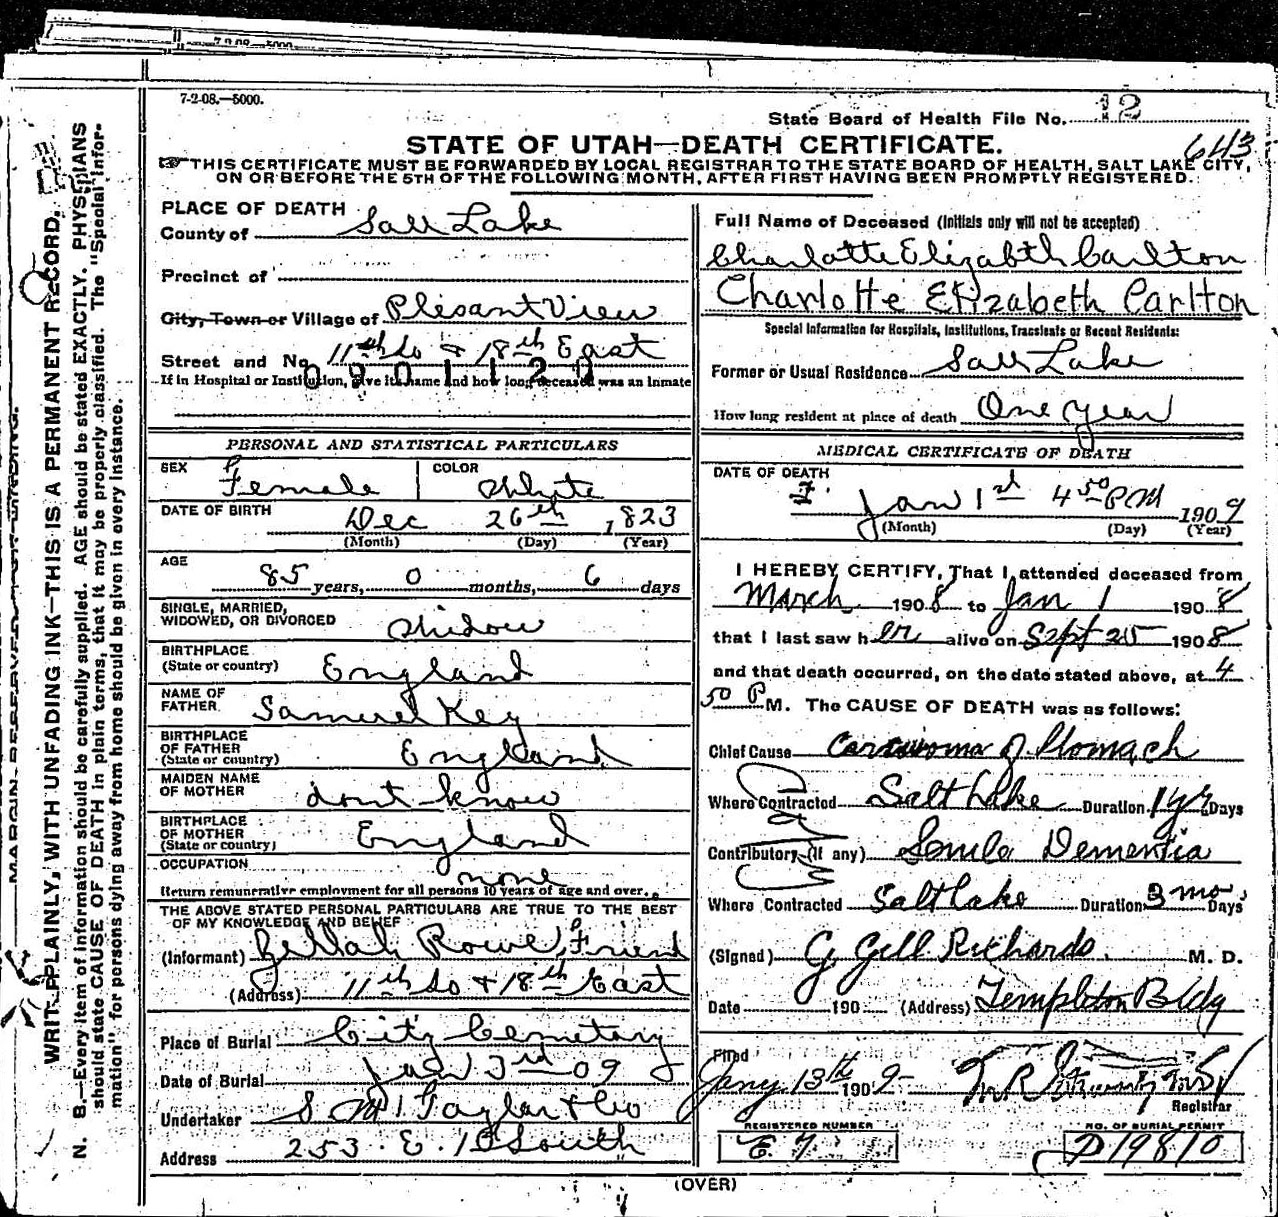 7-2-08.—5000.
State Board of Health File No. 12
643
STATE OF UTAH—DEATH CERTIFICATE.
THIS CERTIFICATE MUST BE FORWARDED BY LOCAL REGISTRAR TO THE STATE BOARD OF HEALTH, SALT LAKE CITY,
ON OR BEFORE THE 5TH OF THE FOLLOWING MONTH, AFTER FIRST HAVING BEEN PROMPTLY REGISTERED.
MARGIN RESERVED FOR BINDING.
WRITE PLAINLY, WITH UNFADING INK—THIS IS A PERMANENT RECORD.
N. B.—Every item of information should be carefully supplied. AGE should be stated EXACTLY. PHYSICIANS
should state CAUSE OF DEATH in plain terms, that it may be properly classified. The "Special Infor-
mation" for persons dying away from home should be given in every instance.
PLACE OF DEATH
County of Salt Lake
Precinct of
City, Town or Village of Plesant View
Street and No. 11th So & 18th East
0901120
If in Hospital or Institution, give its name and how long deceased was an inmate
PERSONAL AND STATISTICAL PARTICULARS
SEX Female COLOR White
DATE OF BIRTH Dec 26th 1823
(Month) (Day) (Year)
AGE 85 years, 0 months, 6 days
SINGLE, MARRIED,
WIDOWED, OR DIVORCED Widow
BIRTHPLACE
(State or country) England
NAME OF
FATHER Samuel Key
BIRTHPLACE
OF FATHER
(State or country) England
MAIDEN NAME
OF MOTHER dont know
BIRTHPLACE
OF MOTHER
(State or country) England
OCCUPATION none
Return remunerative employment for all persons 10 years of age and over.
THE ABOVE STATED PERSONAL PARTICULARS ARE TRUE TO THE BEST
OF MY KNOWLEDGE AND BELIEF
(Informant) Rowe, Friend
(Address) 11th So & 18th East
Place of Burial City Cemetary
Date of Burial Jan 3rd 09
Undertaker S M Taylor & Co
Address 253. E. 1st South
Full Name of Deceased (Initials only will not be accepted)
Charlotte Elizabth Carlton
Charlotte Elizabeth Carlton
Special Information for Hospitals, Institutions, Transients or Recent Residents:
Former or Usual Residence Salt Lake
How long resident at place of death One year
MEDICAL CERTIFICATE OF DEATH
DATE OF DEATH
Jan 1st 4 50 PM 1909
(Month) (Day) (Year)
I HEREBY CERTIFY, That I attended deceased from
March 1908 to Jan 1 1908
that I last saw her alive on Sept 25 1908
and that death occurred, on the date stated above, at 4
50 P M. The CAUSE OF DEATH was as follows:
Chief Cause Carcinoma of Stomach
Where Contracted Salt Lake Duration 1 yr Days
Contributory (if any) Senile Dementia
Where Contracted Salt Lake Duration 3 mo. Days
(Signed) G. Gill Richards. M. D.
Date 190 (Address) Templeton Bldg
Filed
Jany 13th 1909
Registrar
REGISTERED NUMBER
E 7.
NO. OF BURIAL PERMIT
D 19810
(OVER)